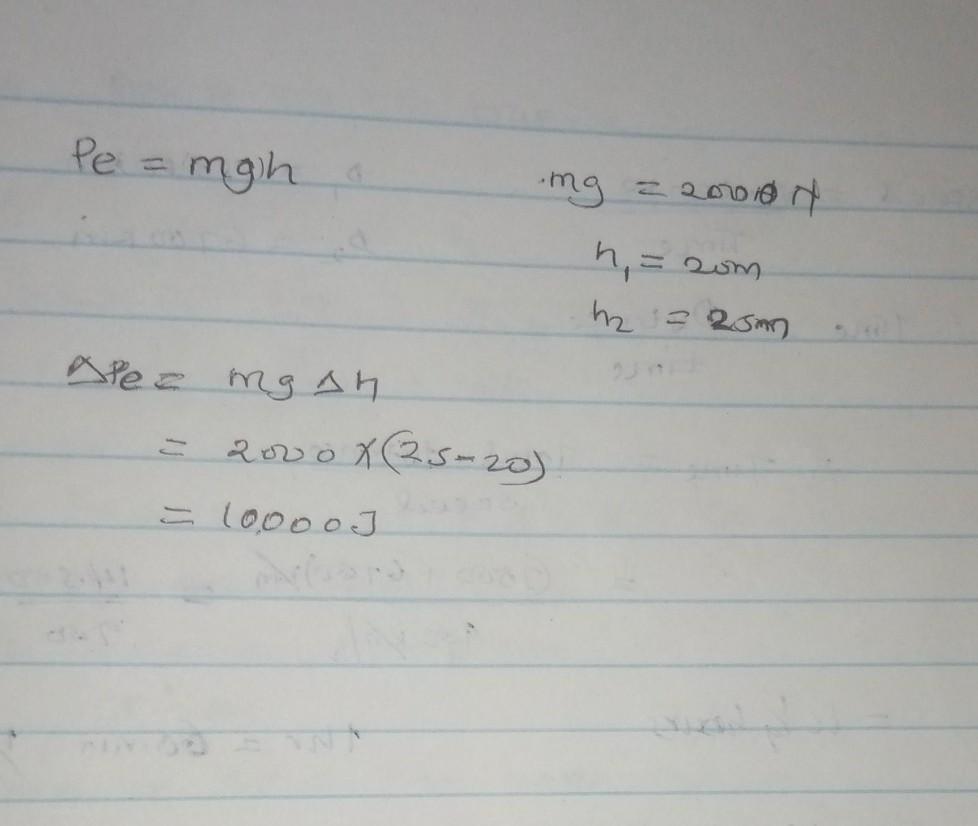 Pe = mgh
mg = 2000 N
h₁ = 20m
h₂ = 25m
ΔPe = mg Δh
= 2000 x (25-20)
= 10,000J